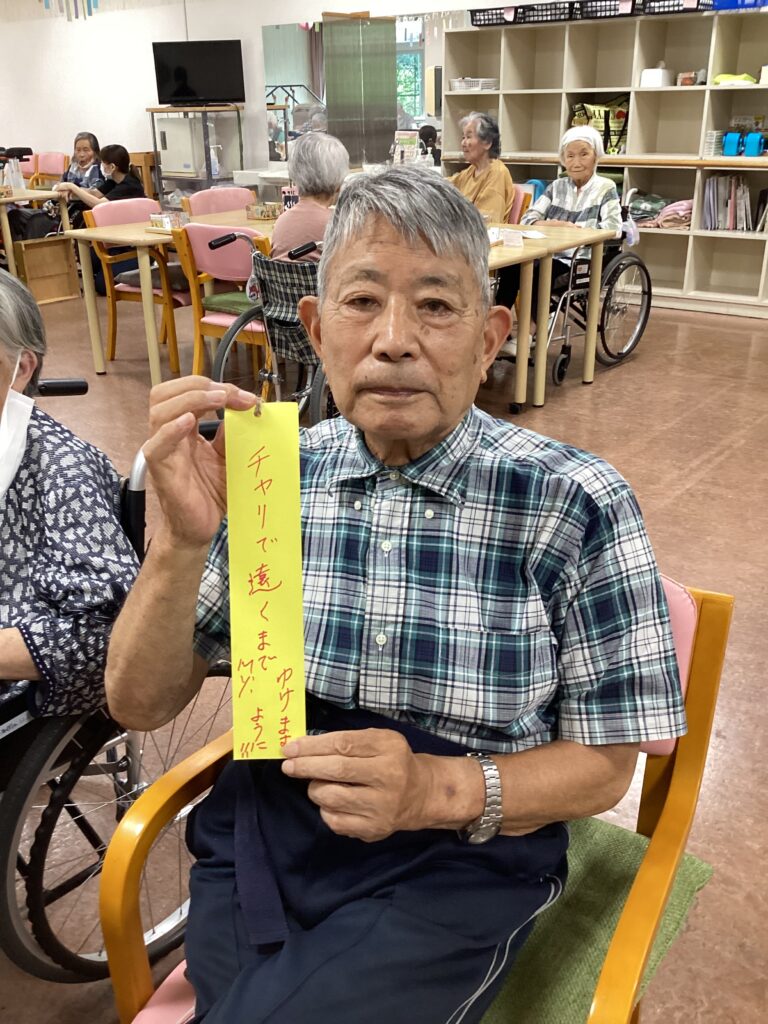 チャリで遠くまで
ゆけます
ように
M.Y.